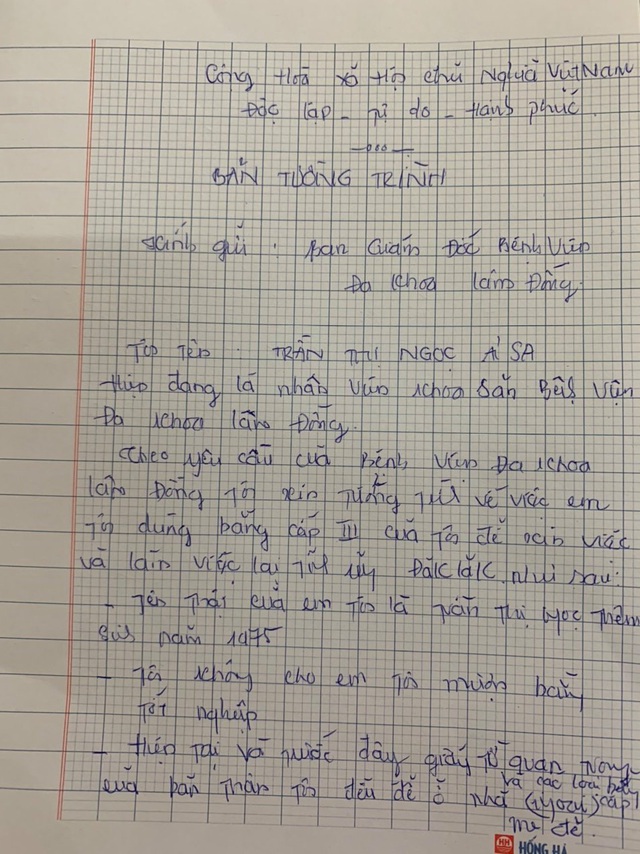 Cộng Hoà xã Hội chủ Nghĩa Việt Nam
Độc lập - Tự do - Hạnh phúc
BẢN TƯỜNG TRÌNH
Kính gửi : Ban Giám Đốc Bệnh Viện
Đa khoa Lâm Đồng.
Tôi Tên : TRẦN THỊ NGỌC Á SA
Hiện đang là nhân viên khoa Sản Bệnh Viện
Đa khoa Lâm Đồng.
Theo yêu cầu của Bệnh Viện Đa khoa
Lâm Đồng Tôi xin Tường Trình về việc em
Tôi dùng bằng cấp III của Tôi để xin việc
và làm việc tại Tỉnh ủy ĐăkLăk như sau:
- Tên Thật của em Tôi là Trần Thị Ngọc Thêm
Sinh năm 1975
- Tôi không cho em Tôi mượn bằng
Tốt nghiệp
- Hiện Tại và trước đây giấy Tờ quan trọng
và các loại bằng
của bản Thân Tôi đều để ở nhà cấp
mẹ đẻ.
HỒNG HÀ